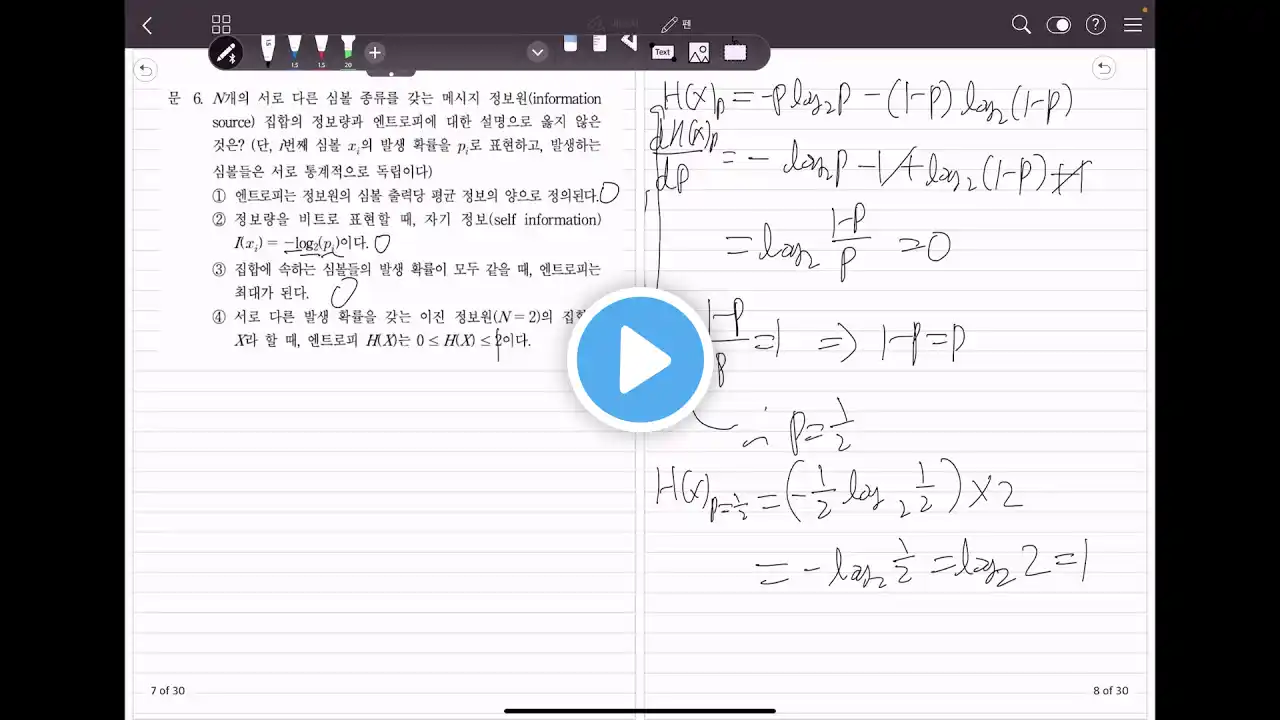 펜
1.5
1.5
1.5
20
Text
문 6. N개의 서로 다른 심볼 종류를 갖는 메시지 정보원(information
source) 집합의 정보량과 엔트로피에 대한 설명으로 옳지 않은
것은? (단, i번째 심볼 xᵢ의 발생 확률을 pᵢ로 표현하고, 발생하는
심볼들은 서로 통계적으로 독립이다)
① 엔트로피는 정보원의 심볼 출력당 평균 정보의 양으로 정의된다.
② 정보량을 비트로 표현할 때, 자기 정보(self information)
I(xᵢ) = −log₂(pᵢ)이다.
③ 집합에 속하는 심볼들의 발생 확률이 모두 같을 때, 엔트로피는
최대가 된다.
④ 서로 다른 발생 확률을 갖는 이진 정보원(N = 2)의
X라 할 때, 엔트로피 H(X)는 0 ≤ H(X) ≤ 2이다.
7 of 30
H(X)p = -p log₂p - (1-p) log₂(1-p)
dH(X)p/dp = - log₂p - 1 + log₂(1-p) + 1
= log₂ (1-p)/p = 0
(1-p)/p = 1 ⇒ 1-p = p
∴ p = 1/2
H(X)p=1/2 = (-1/2 log₂ 1/2) × 2
= -log₂ 1/2 = log₂ 2 = 1
8 of 30